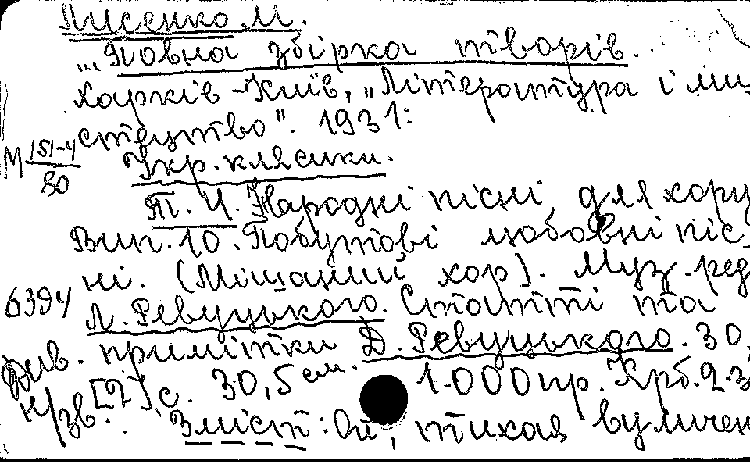 Лисенко М.
"Повна збірка творів.
Харків-Київ, „Література і ми-
стецтво". 1931:
М 151-4/80 Укр. клясики.
Т. II. Народні пісні для хору
Вип. 10. Побутові любовні піс-
ні. (Мішаний хор). Муз. ред.
6394 Л. Ревуцького. Статті та
примітки Д. Ревуцького. 30,
с. 30,5 см. 1.000 пр. Крб. 2.3
Н/зв.
Зміст: Ой, тихая вуличен